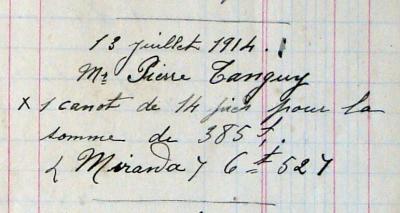 13 juillet 1914.
Mr Pierre Tanguy
x 1 canot de 14 pieds pour la
somme de 385 f.
( Miranda ) 6 tx 527